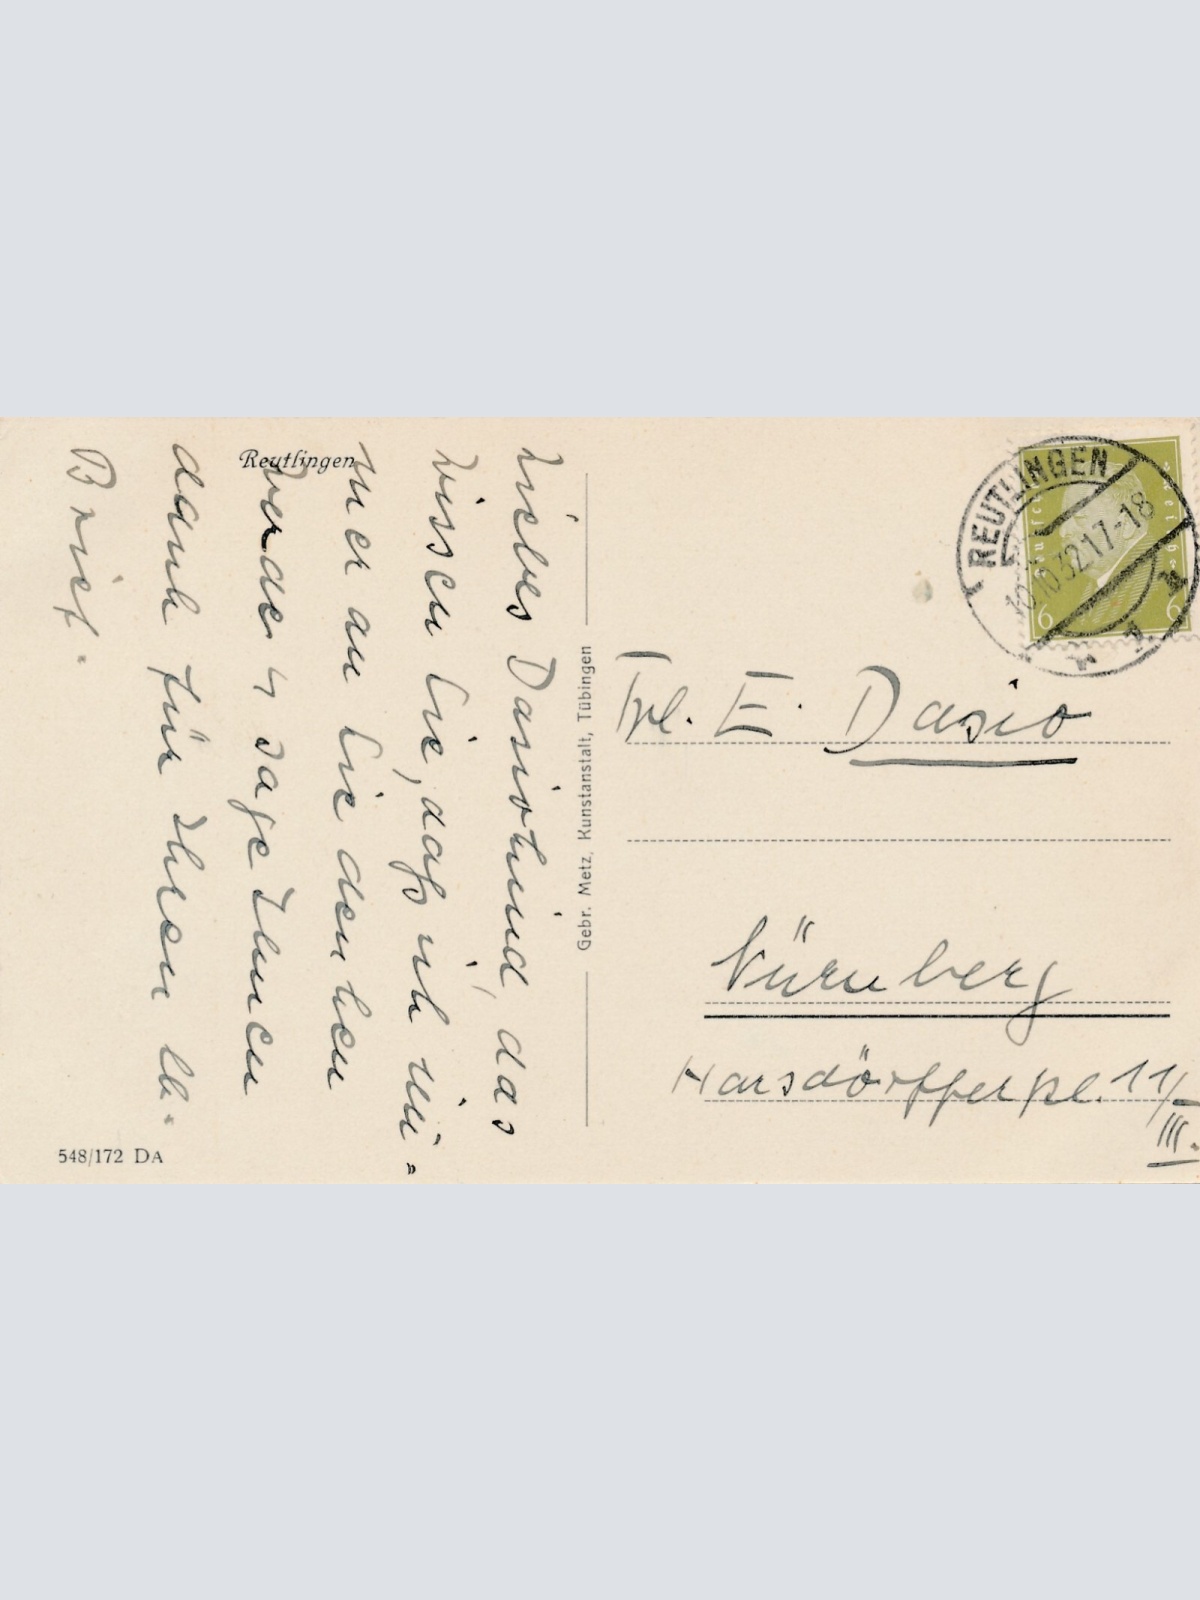 Reutlingen
Liebes Dasiokind, das
wissen Sie, daß ich im=
mer an Sie denken
werde u sage Ihnen
dank für Ihren lb.
Brief.
548/172 DA
Gebr. Metz, Kunstanstalt, Tübingen
REUTLINGEN
10.32.17-18
6
6
Frl. E. Dasio
Nürnberg
Harsdörfferpl. 11/
III.